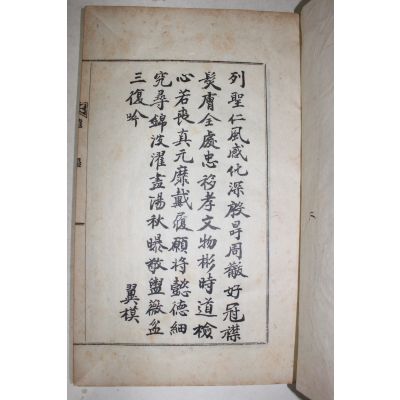 列聖仁風感化深殷冔周黻好冠襟
髮膚全處忠移孝文物彬時道檢
心若喪真元靡戴履願將懿德細
究尋錦浚濯盡湯秋曝敬盥薇盆
三復吟
翼模